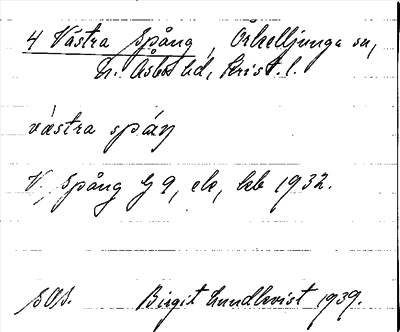 4 Västra Spång, Örkelljunga sn,
N. Åsbo hd, Krist. l.
västra spáŋ
V. Spång G 9, ek, kb 1932.
SOS. Birgit Lundkvist 1939.